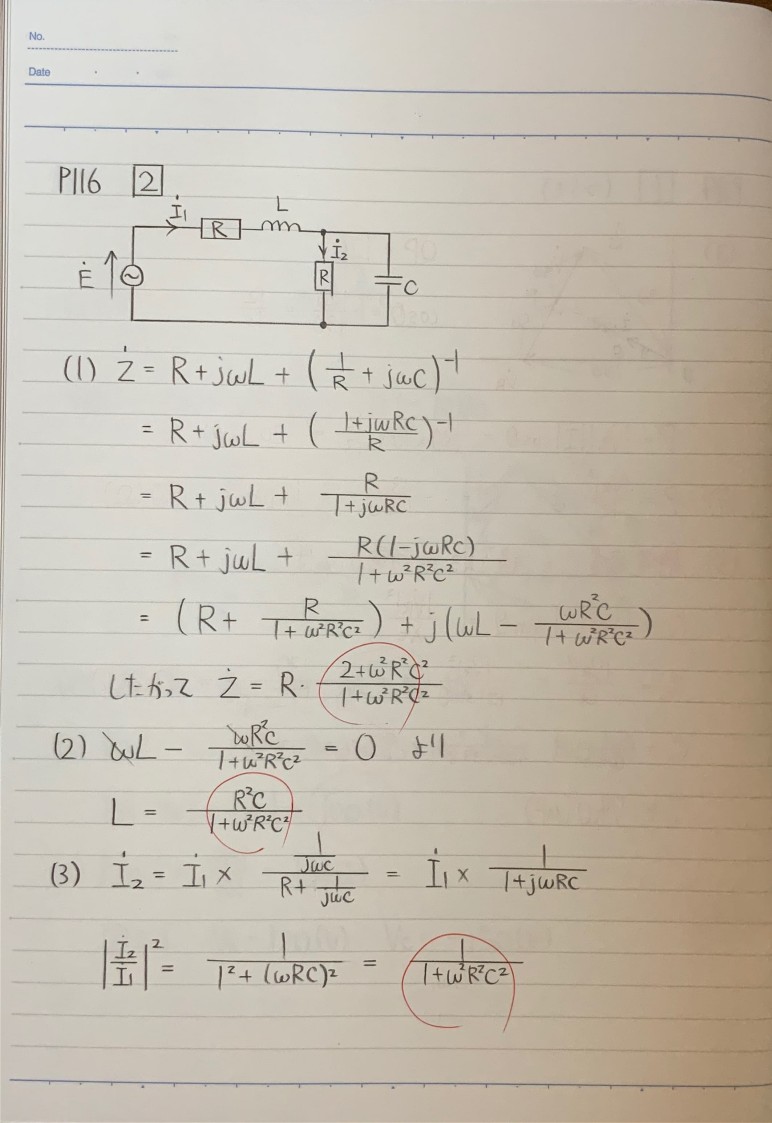 No.
Date
P116 2
İ₁ R L
Ė İ₂ R C
(1) Ż = R + jωL + (1/R + jωC)⁻¹
= R + jωL + ((1+jωRC)/R)⁻¹
= R + jωL + R/(1+jωRC)
= R + jωL + R(1-jωRC)/(1+ω²R²C²)
= (R + R/(1+ω²R²C²)) + j(ωL - ωR²C/(1+ω²R²C²))
したがって Ż = R・(2+ω²R²C²)/(1+ω²R²C²)
(2) ωL - ωR²C/(1+ω²R²C²) = 0 より
L = R²C/(1+ω²R²C²)
(3) İ₂ = İ₁ × (1/jωC)/(R + 1/jωC) = İ₁ × 1/(1+jωRC)
|İ₂/İ₁|² = 1/(1²+(ωRC)²) = 1/(1+ω²R²C²)